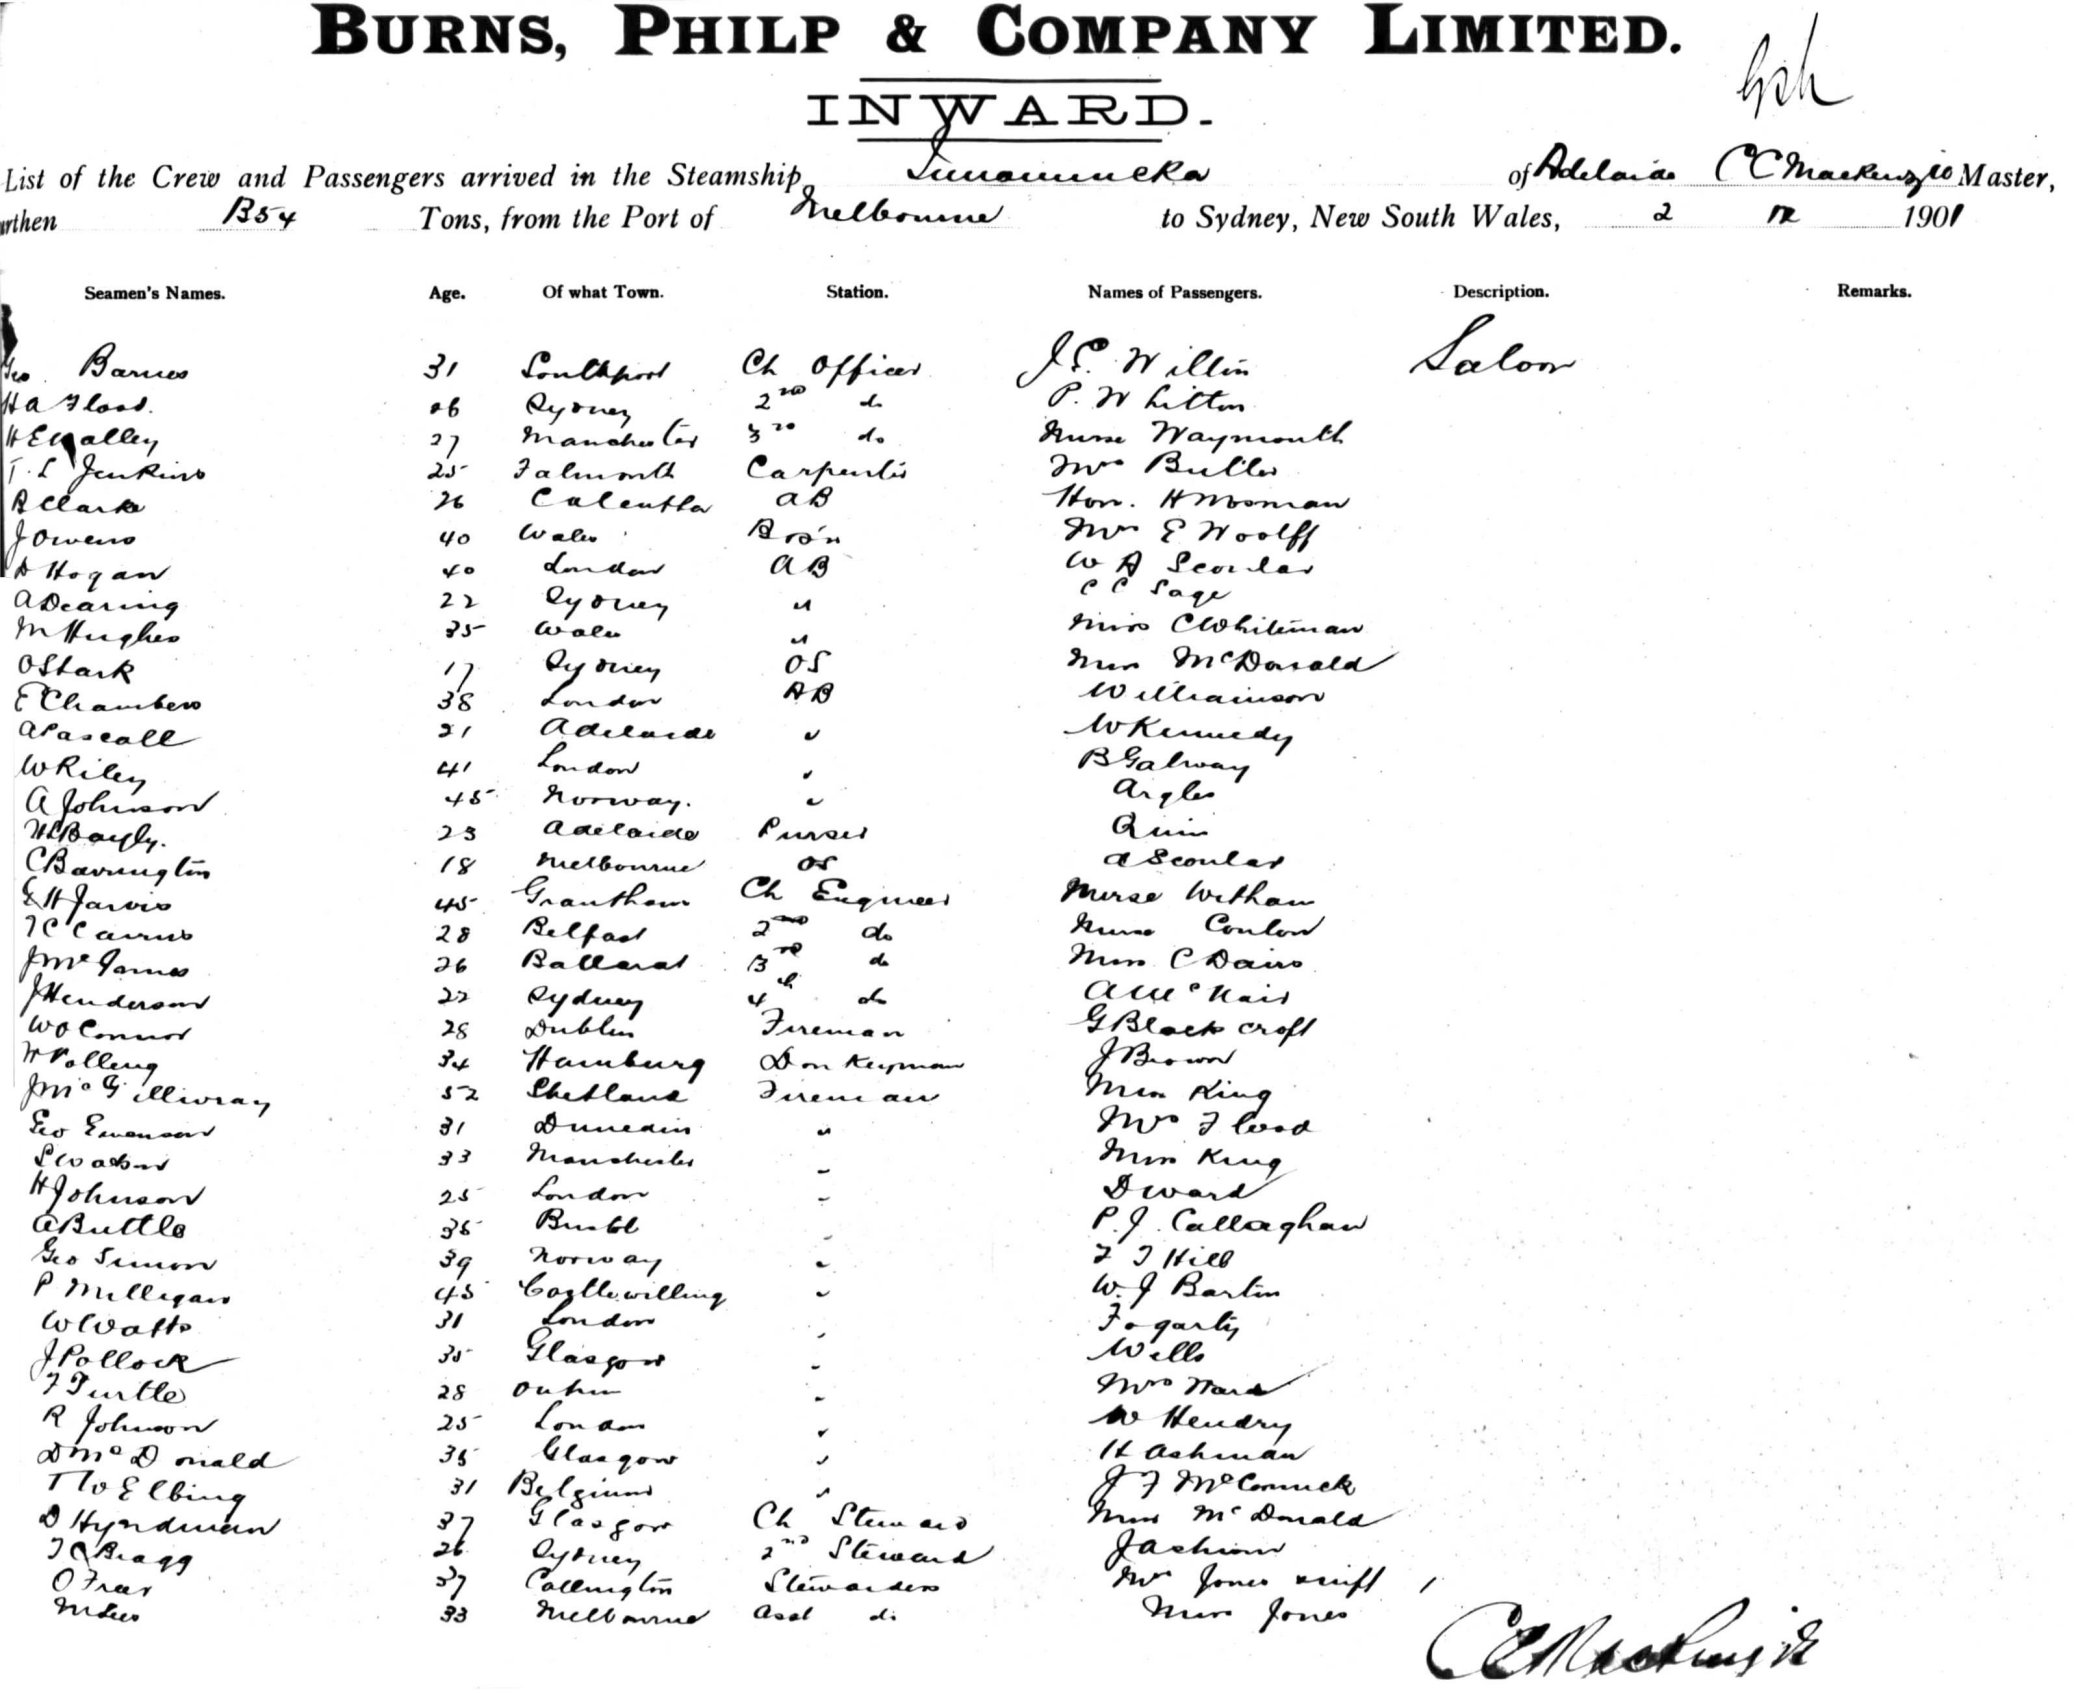 BURNS, PHILP & COMPANY LIMITED.
INWARD.
List of the Crew and Passengers arrived in the Steamship Innamincka of Adelaide C C Mackenzie Master,
urthen B54 Tons, from the Port of Melbourne to Sydney, New South Wales, 2 12 1901
Seamen's Names. Age. Of what Town. Station. Names of Passengers. Description. Remarks.
Geo Barnes 31 Southport Ch Officer J.E. Willin Saloon
H A Flood. 26 Sydney 2nd do P. Whitton
H E Walley 27 Manchester 3rd do Nurse Waymouth
T. L Jenkins 25 Falmouth Carpenter Mrs Butler
R Clarke 26 Calcutta AB Hon. H Mosman
J Owens 40 Wales Bos'n Mrs E Woolff
D Hogan 40 London AB W A Scoular
A Dearing 22 Sydney " C C Sage
M Hughes 35 Wales " Miss C Whiteman
O Stark 17 Sydney OS Miss McDonald
E Chambers 38 London AB Williamson
A Pascall 21 Adelaide " W Kennedy
W Riley 41 London " B Galway
A Johnson 45 Norway. " Argles
Bayly. 23 Adelaide Purser Quin
C Barrington 18 Melbourne OS A Scoular
E H Jarvis 45 Grantham Ch Engineer Nurse Witham
T C Cairns 28 Belfast 2nd do Nurse Conlon
J McJames 26 Ballarat 3rd do Miss C Davis
J Henderson 22 Sydney 4th do A McNair
W O Connor 28 Dublin Fireman G Blackcroft
W Polleng 34 Hamburg Donkeyman J Brown
J McGillivray 52 Shetland Fireman Miss King
Geo Evenson 31 Dunedin " Mrs Flood
33 Manchester " Miss King
H Johnson 25 London " D Ward
A Buttle 35 " P.J. Callaghan
Geo Simon 39 Norway " F J Hill
P Milligan 45 Castlewilling " W.J Bartin
W Watts 31 London " Fogarty
J Pollock 35 Glasgow " Wells
F Turtle 28 " Mrs Ward
R Johnson 25 London " W Hendry
D McDonald 35 Glasgow " H Ashman
Elbing 31 Belgium " J F McCormick
D Hyndman 37 Glasgow Ch Steward Miss McDonald
T C Bragg 26 Sydney 2nd Steward J Ashman
O Frar 37 Collington Stewardess Mrs Jones & inft 1
M Lees 33 Melbourne Asst do Miss Jones
C C Mackenzie